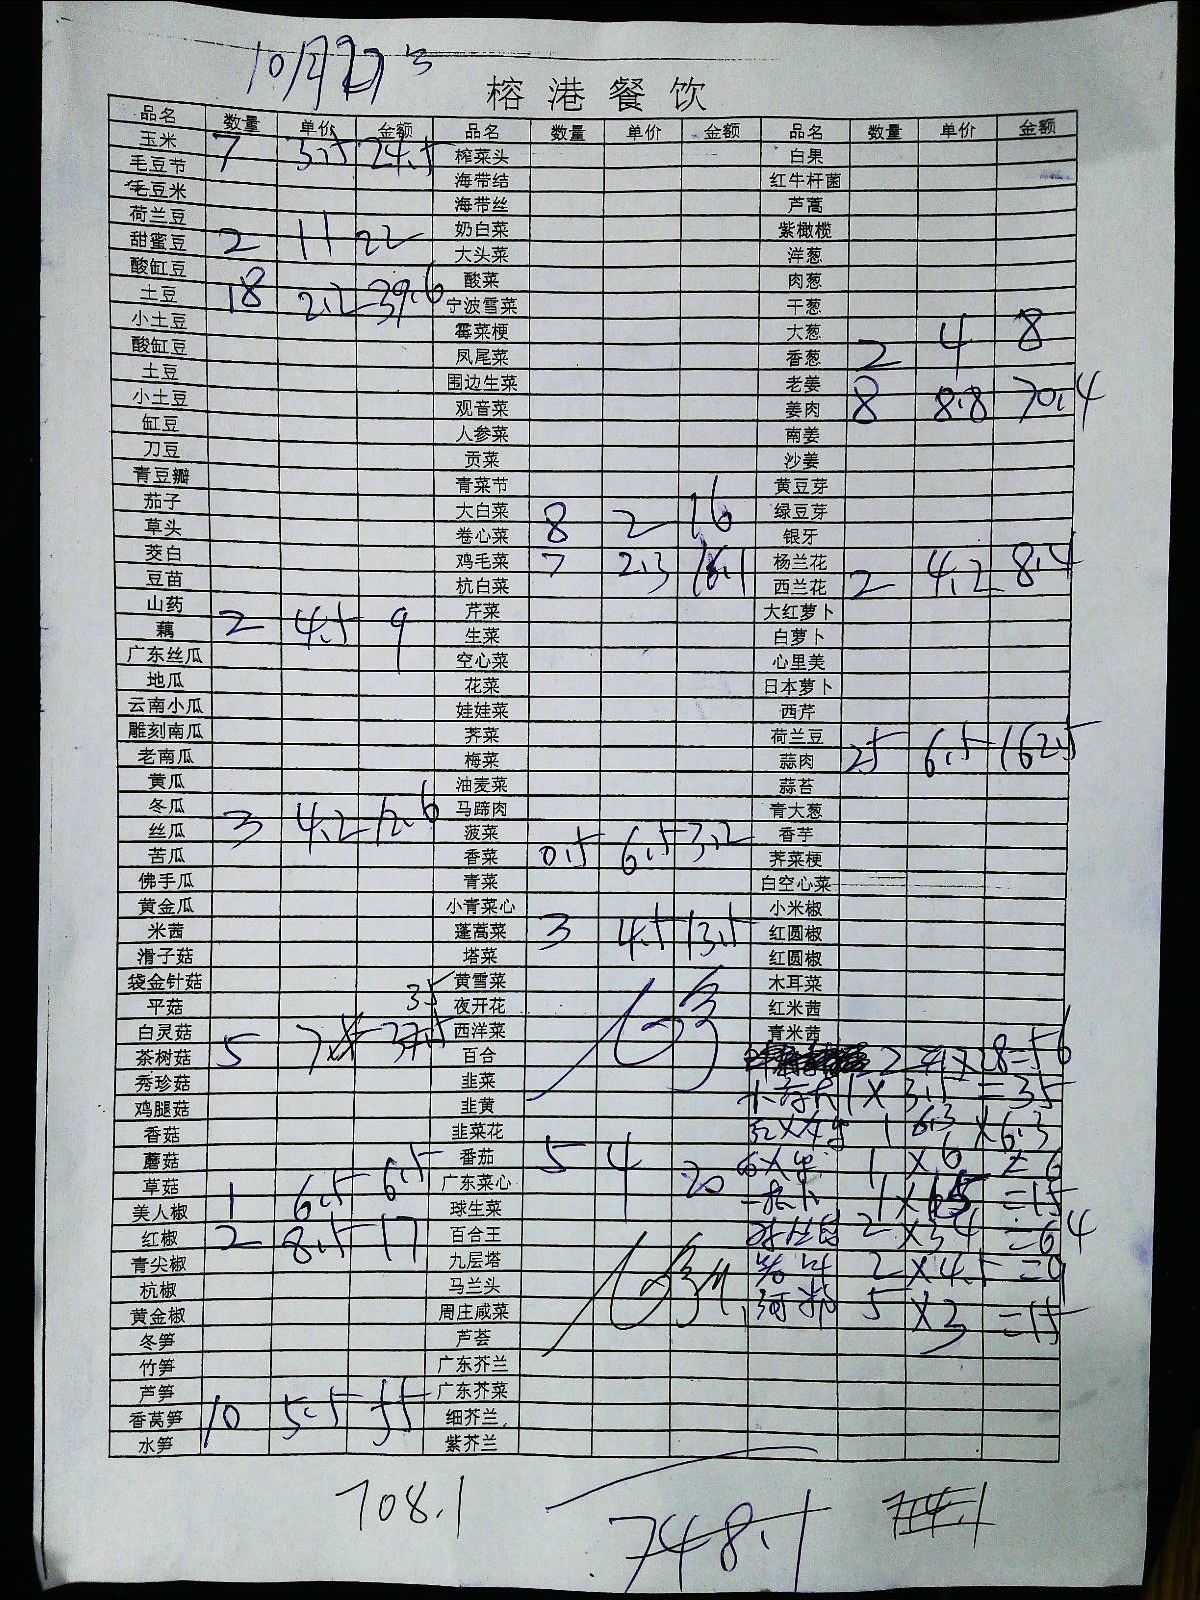 10月27号
榕港餐饮
品名 数量 单价 金额 品名 数量 单价 金额 品名 数量 单价 金额
玉米 7 3.5 24.5 榨菜头 白果
毛豆节 海带结 红牛杆菌
毛豆米 海带丝 芦蒿
荷兰豆 奶白菜 紫橄榄
甜蜜豆 2 11 22 大头菜 洋葱
酸缸豆 酸菜 肉葱
土豆 18 2.2 39.6 宁波雪菜 干葱
小土豆 霉菜梗 大葱
酸缸豆 凤尾菜 香葱 2 4 8
土豆 围边生菜 老姜
小土豆 观音菜 姜肉 8 8.8 70.4
缸豆 人参菜 南姜
刀豆 贡菜 沙姜
青豆瓣 青菜节 黄豆芽
茄子 大白菜 绿豆芽
草头 卷心菜 8 2 16 银牙
茭白 鸡毛菜 7 2.3 16.1 杨兰花
豆苗 杭白菜 西兰花 2 4.2 8.4
山药 芹菜 大红萝卜
藕 2 4.5 9 生菜 白萝卜
广东丝瓜 空心菜 心里美
地瓜 花菜 日本萝卜
云南小瓜 娃娃菜 西芹
雕刻南瓜 荠菜 荷兰豆
老南瓜 梅菜 蒜肉 25 6.5 162.5
黄瓜 油麦菜 蒜苔
冬瓜 马蹄肉 青大葱
丝瓜 3 4.2 12.6 菠菜 香芋
苦瓜 香菜 0.5 6.5 3.2 荠菜梗
佛手瓜 青菜 白空心菜
黄金瓜 小青菜心 小米椒
米茜 蓬蒿菜 3 4.5 13.5 红圆椒
滑子菇 塔菜 红圆椒
袋金针菇 黄雪菜 木耳菜
平菇 35 夜开花 红米茜
白灵菇 西洋菜 青米茜
茶树菇 5 百合 28=56
秀珍菇 韭菜 1×3.5=35
鸡腿菇 韭黄
香菇 韭菜花 1 6.3 ×6.3
蘑菇 番茄 5 4 20 1×6=6
草菇 广东菜心
美人椒 1 6.5 6.5 球生菜 =15
红椒 2 8.5 17 百合王 2×34=64
青尖椒 九层塔 2×4.5=9
杭椒 马兰头
黄金椒 周庄咸菜 河粉 5×3=15
冬笋 芦荟
竹笋 广东芥兰
芦笋 广东芥菜
香莴笋 10 5.5 55 细芥兰
水笋 紫芥兰
708.1
748.1